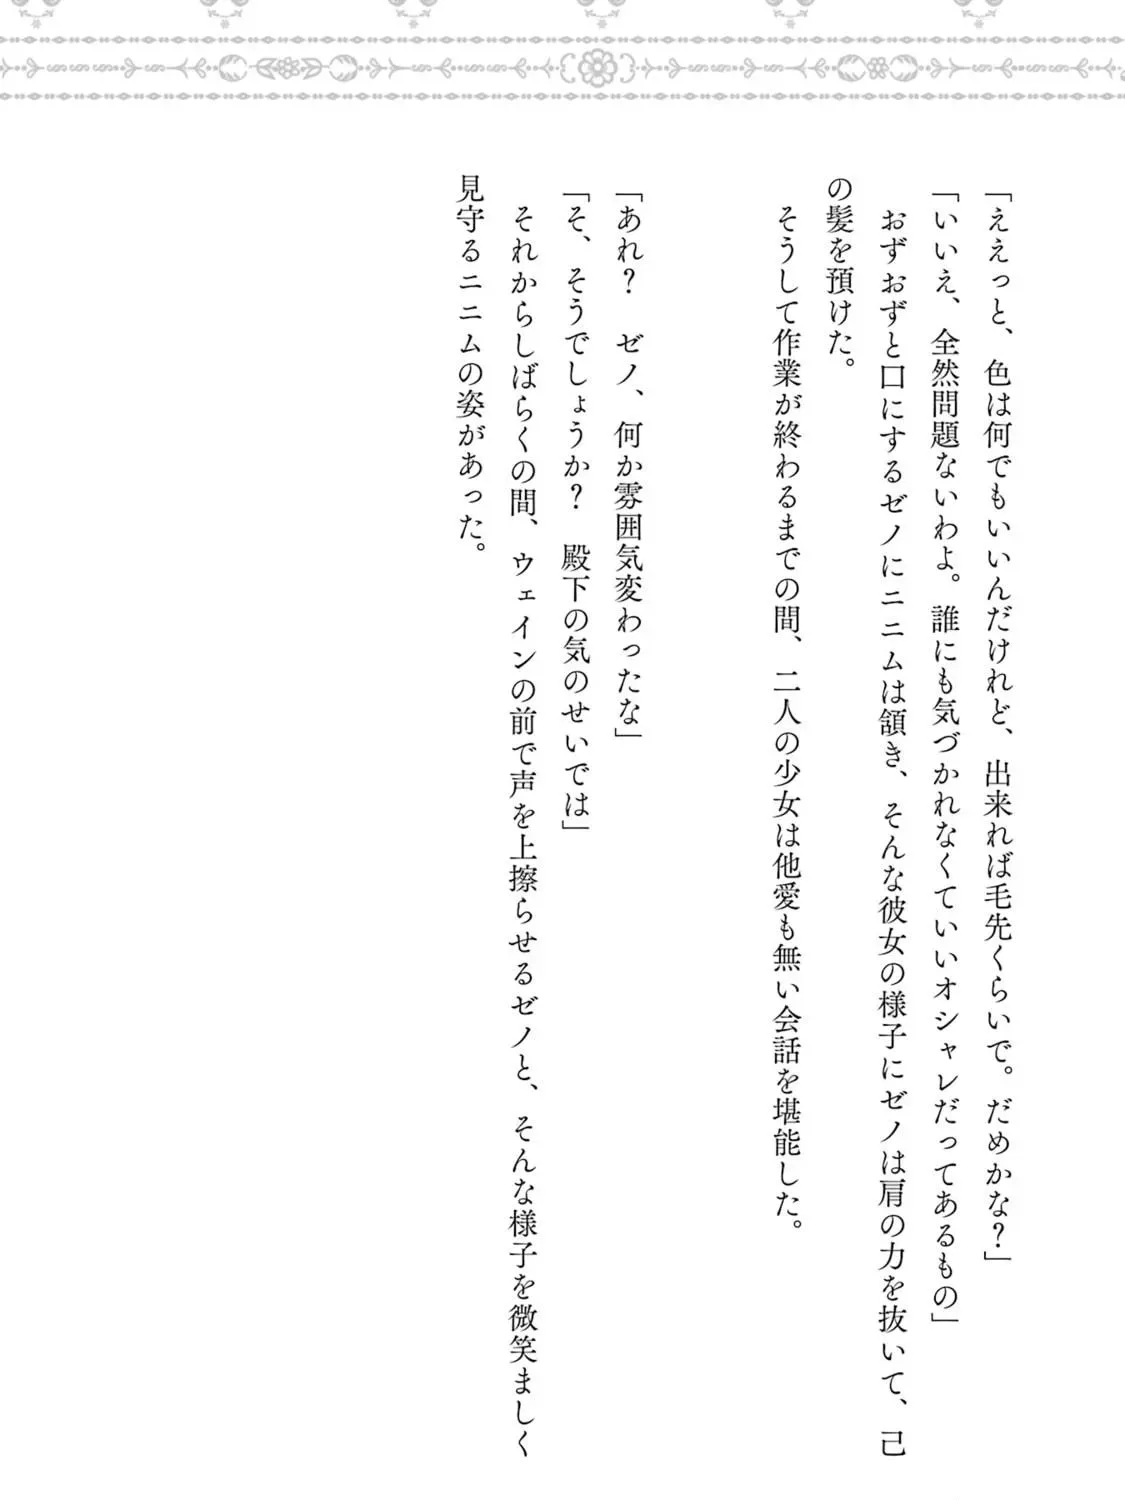 「ええっと、色は何でもいいんだけれど、出来れば毛先くらいで。だめかな？」
「いいえ、全然問題ないわよ。誰にも気づかれなくていいオシャレだってあるもの」
　おずおずと口にするゼノにニニムは頷き、そんな彼女の様子にゼノは肩の力を抜いて、己
の髪を預けた。
　そうして作業が終わるまでの間、二人の少女は他愛も無い会話を堪能した。
「あれ？　ゼノ、何か雰囲気変わったな」
「そ、そうでしょうか？　殿下の気のせいでは」
　それからしばらくの間、ウェインの前で声を上擦らせるゼノと、そんな様子を微笑ましく
見守るニニムの姿があった。